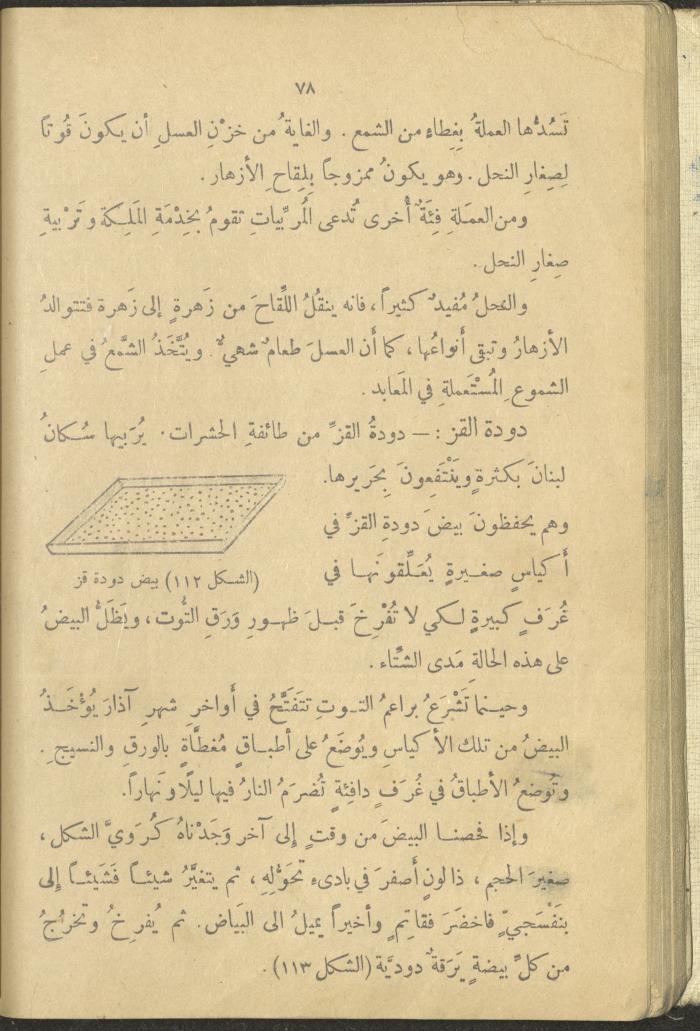 ٧٨
تَسُدُّها العملةُ بِغِطاءٍ من الشمع . والغايةُ من خزْنِ العسلِ أن يكونَ قُوتاً
لِصِغارِ النحل . وهو يكونُ ممزوجاً بِلِقاحِ الأزهار .
ومن العمَلةِ فِئَةٌ أُخرى تُدعى المُربِّياتِ تقومُ بخِدْمَةِ المَلِكة وتَرْبيةِ
صغارِ النحل .
والنحلُ مُفيدٌ كثيراً ، فانه ينقُلُ اللِّقاحَ من زَهرةٍ إلى زَهرة فتتوالدُ
الأزهارُ وتبقى أَنواعُها ، كما أَن العسلَ طعامٌ شهيٌّ . ويُتَّخَذُ الشَّمعُ في عملِ
الشموعِ المُسْتَعملةِ في المَعابد .
دودة القز : — دودةُ القزِّ من طائفةِ الحشرات . يُرَبيها سُكانُ
لبنانَ بكثرةٍ ويَنْتَفِعونَ بِحَريرها.
وهم يحفظونَ بيضَ دودةِ القزِّ في
أَكياسٍ صغيرةٍ يُعَلِّقونَها في
(الشكل ١١٢) بيض دودة قز
غُرَفٍ كبيرةٍ لكي لا تُفْرِخَ قبلَ ظهورِ وَرَقِ التُّوت ، ويَظَلُّ البيضُ
على هذه الحالةِ مَدى الشتّاء .
وحينما تَشْرَعُ براعمُ التوتِ تتَفَتَّحُ في أَواخرِ شهرِ آذارَ يُؤْخَذُ
البيضُ من تلك الأكياسِ ويُوضَعُ على أطباقٍ مُغطَّاةٍ بالورقِ والنسيجِ .
وتُوضعُ الأطباقُ في غُرَفٍ دافِئةٍ تُضرَمُ النارُ فيها ليلًا ونَهاراً.
وإذا فحصنا البيضَ من وقتٍ إلى آخر وَجَدْناهُ كُرَويَّ الشكل ،
صغيرَ الحجمِ ، ذا لونٍ أصفرَ في بادىءِ تحَوُّلِهِ ، ثم يتغيَّرُ شيئاً فَشَيئاً إلى
بنَفْسَجيٍّ فاخضَرَ فقاتمٍ وأخيراً يميلُ الى البَياض. ثم يُفرِخُ وتخرُجُ
من كلِّ بيضةٍ يَرَقةٌ دوديَّة (الشكل ١١٣) .